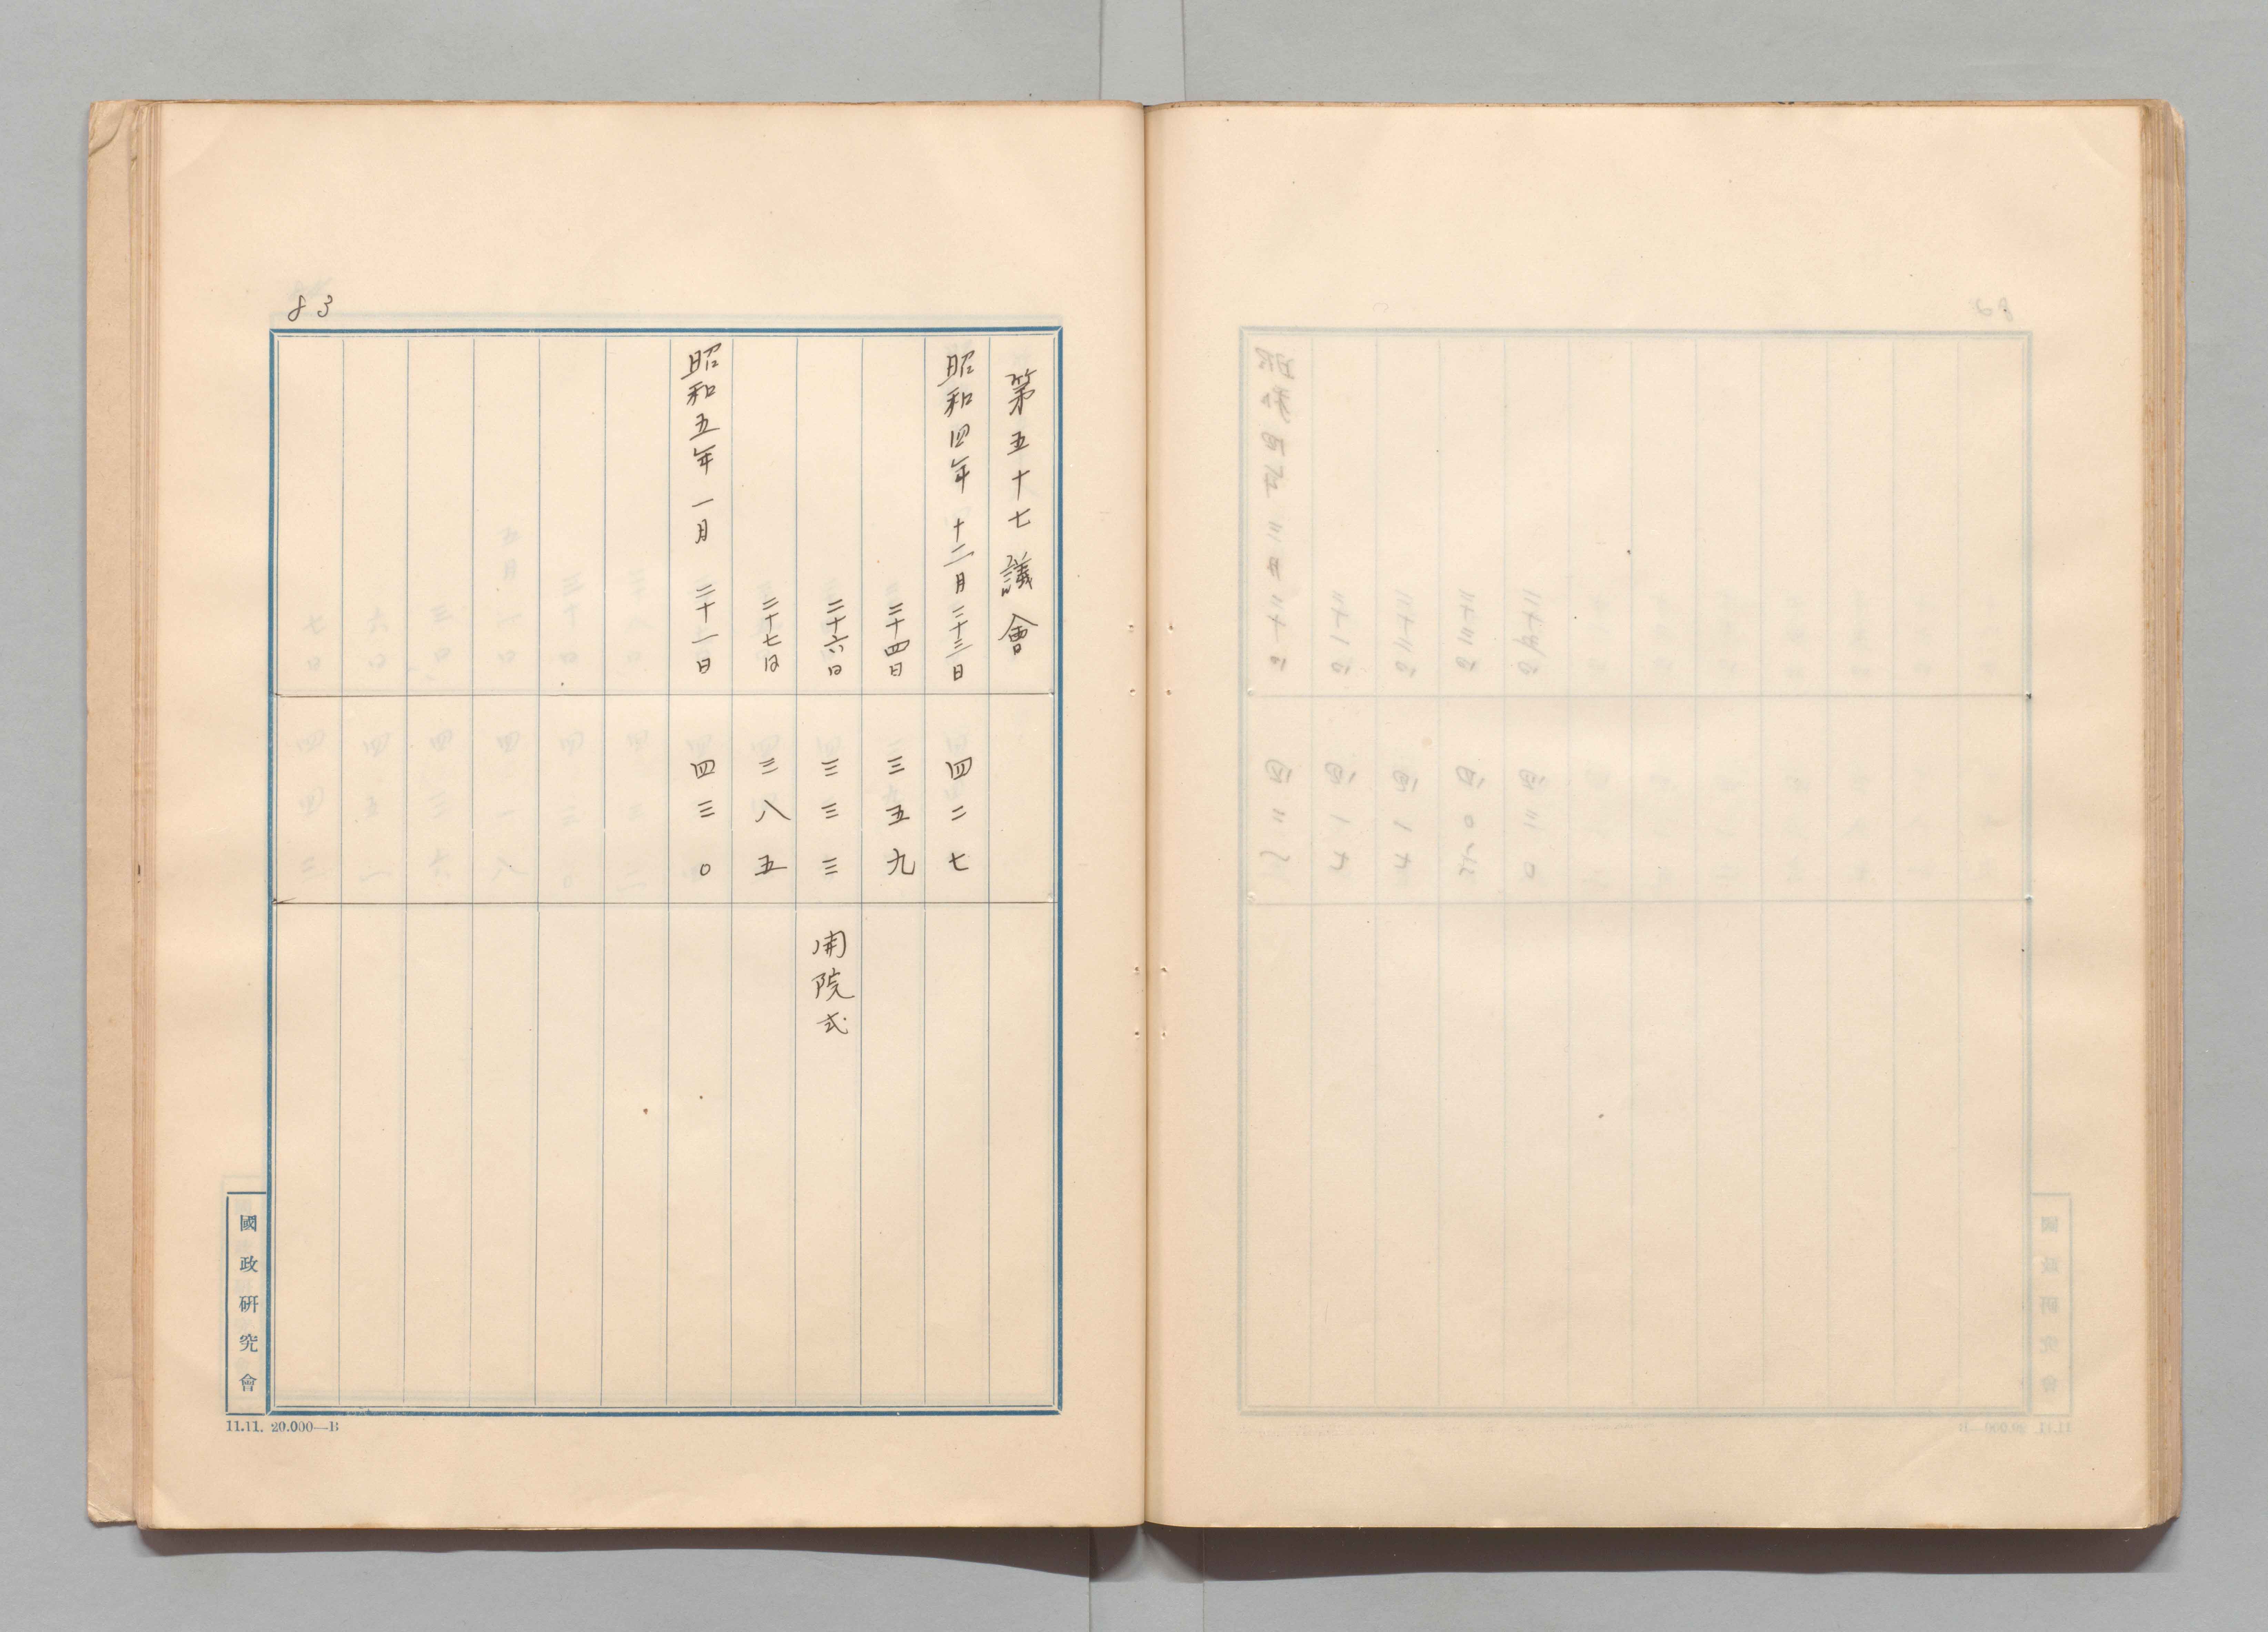 83
第五十七議會
昭和四年十二月二十三日 四二七
二十四日 三五九
二十六日 三三三 開院式
二十七日 三八五
昭和五年一月二十一日 四三〇
國政研究會
11.11. 20.000—B